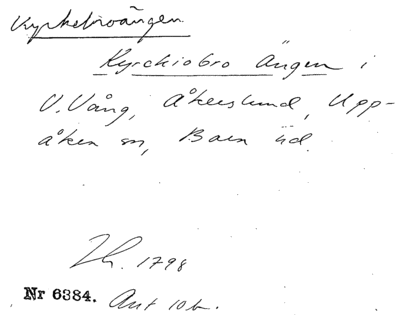 Kyrkebroängen.
Kyrckiobro Ängen i
V. Vång, Åkerslund, Upp-
åkra sn, Bara hd.
Lh. 1798
Nr 6384. Ant 10b.